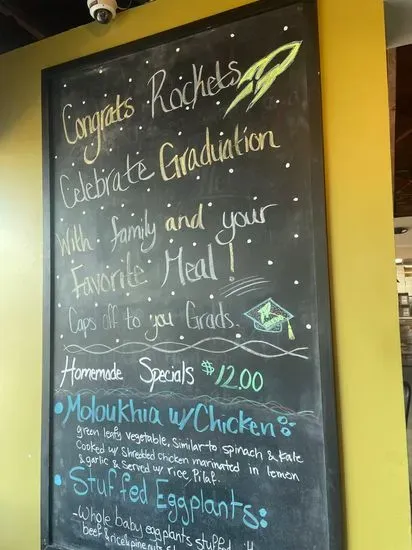 Congrats Rockets
Celebrate Graduation
With family and your
Favorite Meal!
Caps off to you Grads.
Homemade Specials $12.00
• Moloukhia w/ Chicken
green leafy vegetable, Similar to spinach & kale
Cooked w/ Shredded chicken marinated in lemon
& garlic & Served w/ rice Pilaf.
• Stuffed Eggplants:
- Whole baby eggplants stuffed
beef & rice & pine nuts